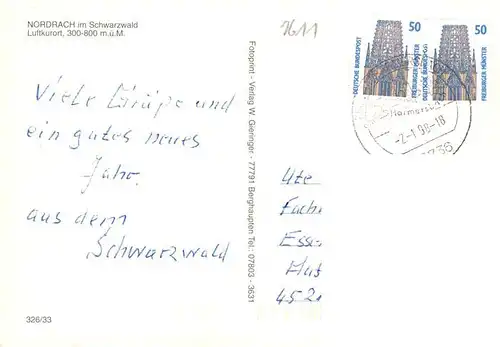 NORDRACH im Schwarzwald
Luftkurort, 300-800 m.ü.M.
7611
50
50
DEUTSCHE BUNDESPOST
FREIBURGER MÜNSTER
DEUTSCHE BUNDESPOST
FREIBURGER MÜNSTER
-2-1.98-18
Viele Grüße und
ein gutes neues
Jahr.
aus dem
Schwarzwald
Fotoprint - Verlag W. Gieringer - 77791 Berghaupten Tel.: 07803 - 3631
Ute
Fach
Esse
Hat
452
326/33